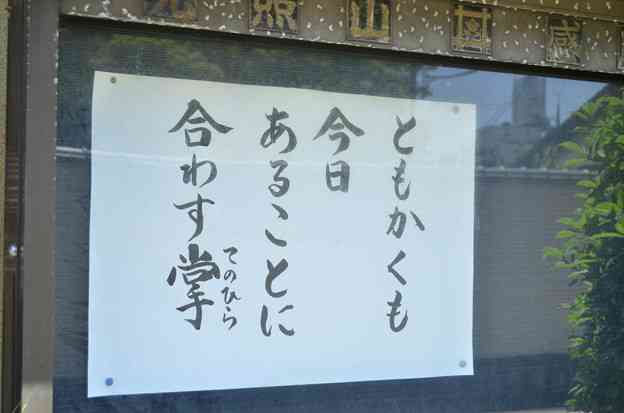 ともかくも
今日
あることに
合わす掌
てのひら
山
感